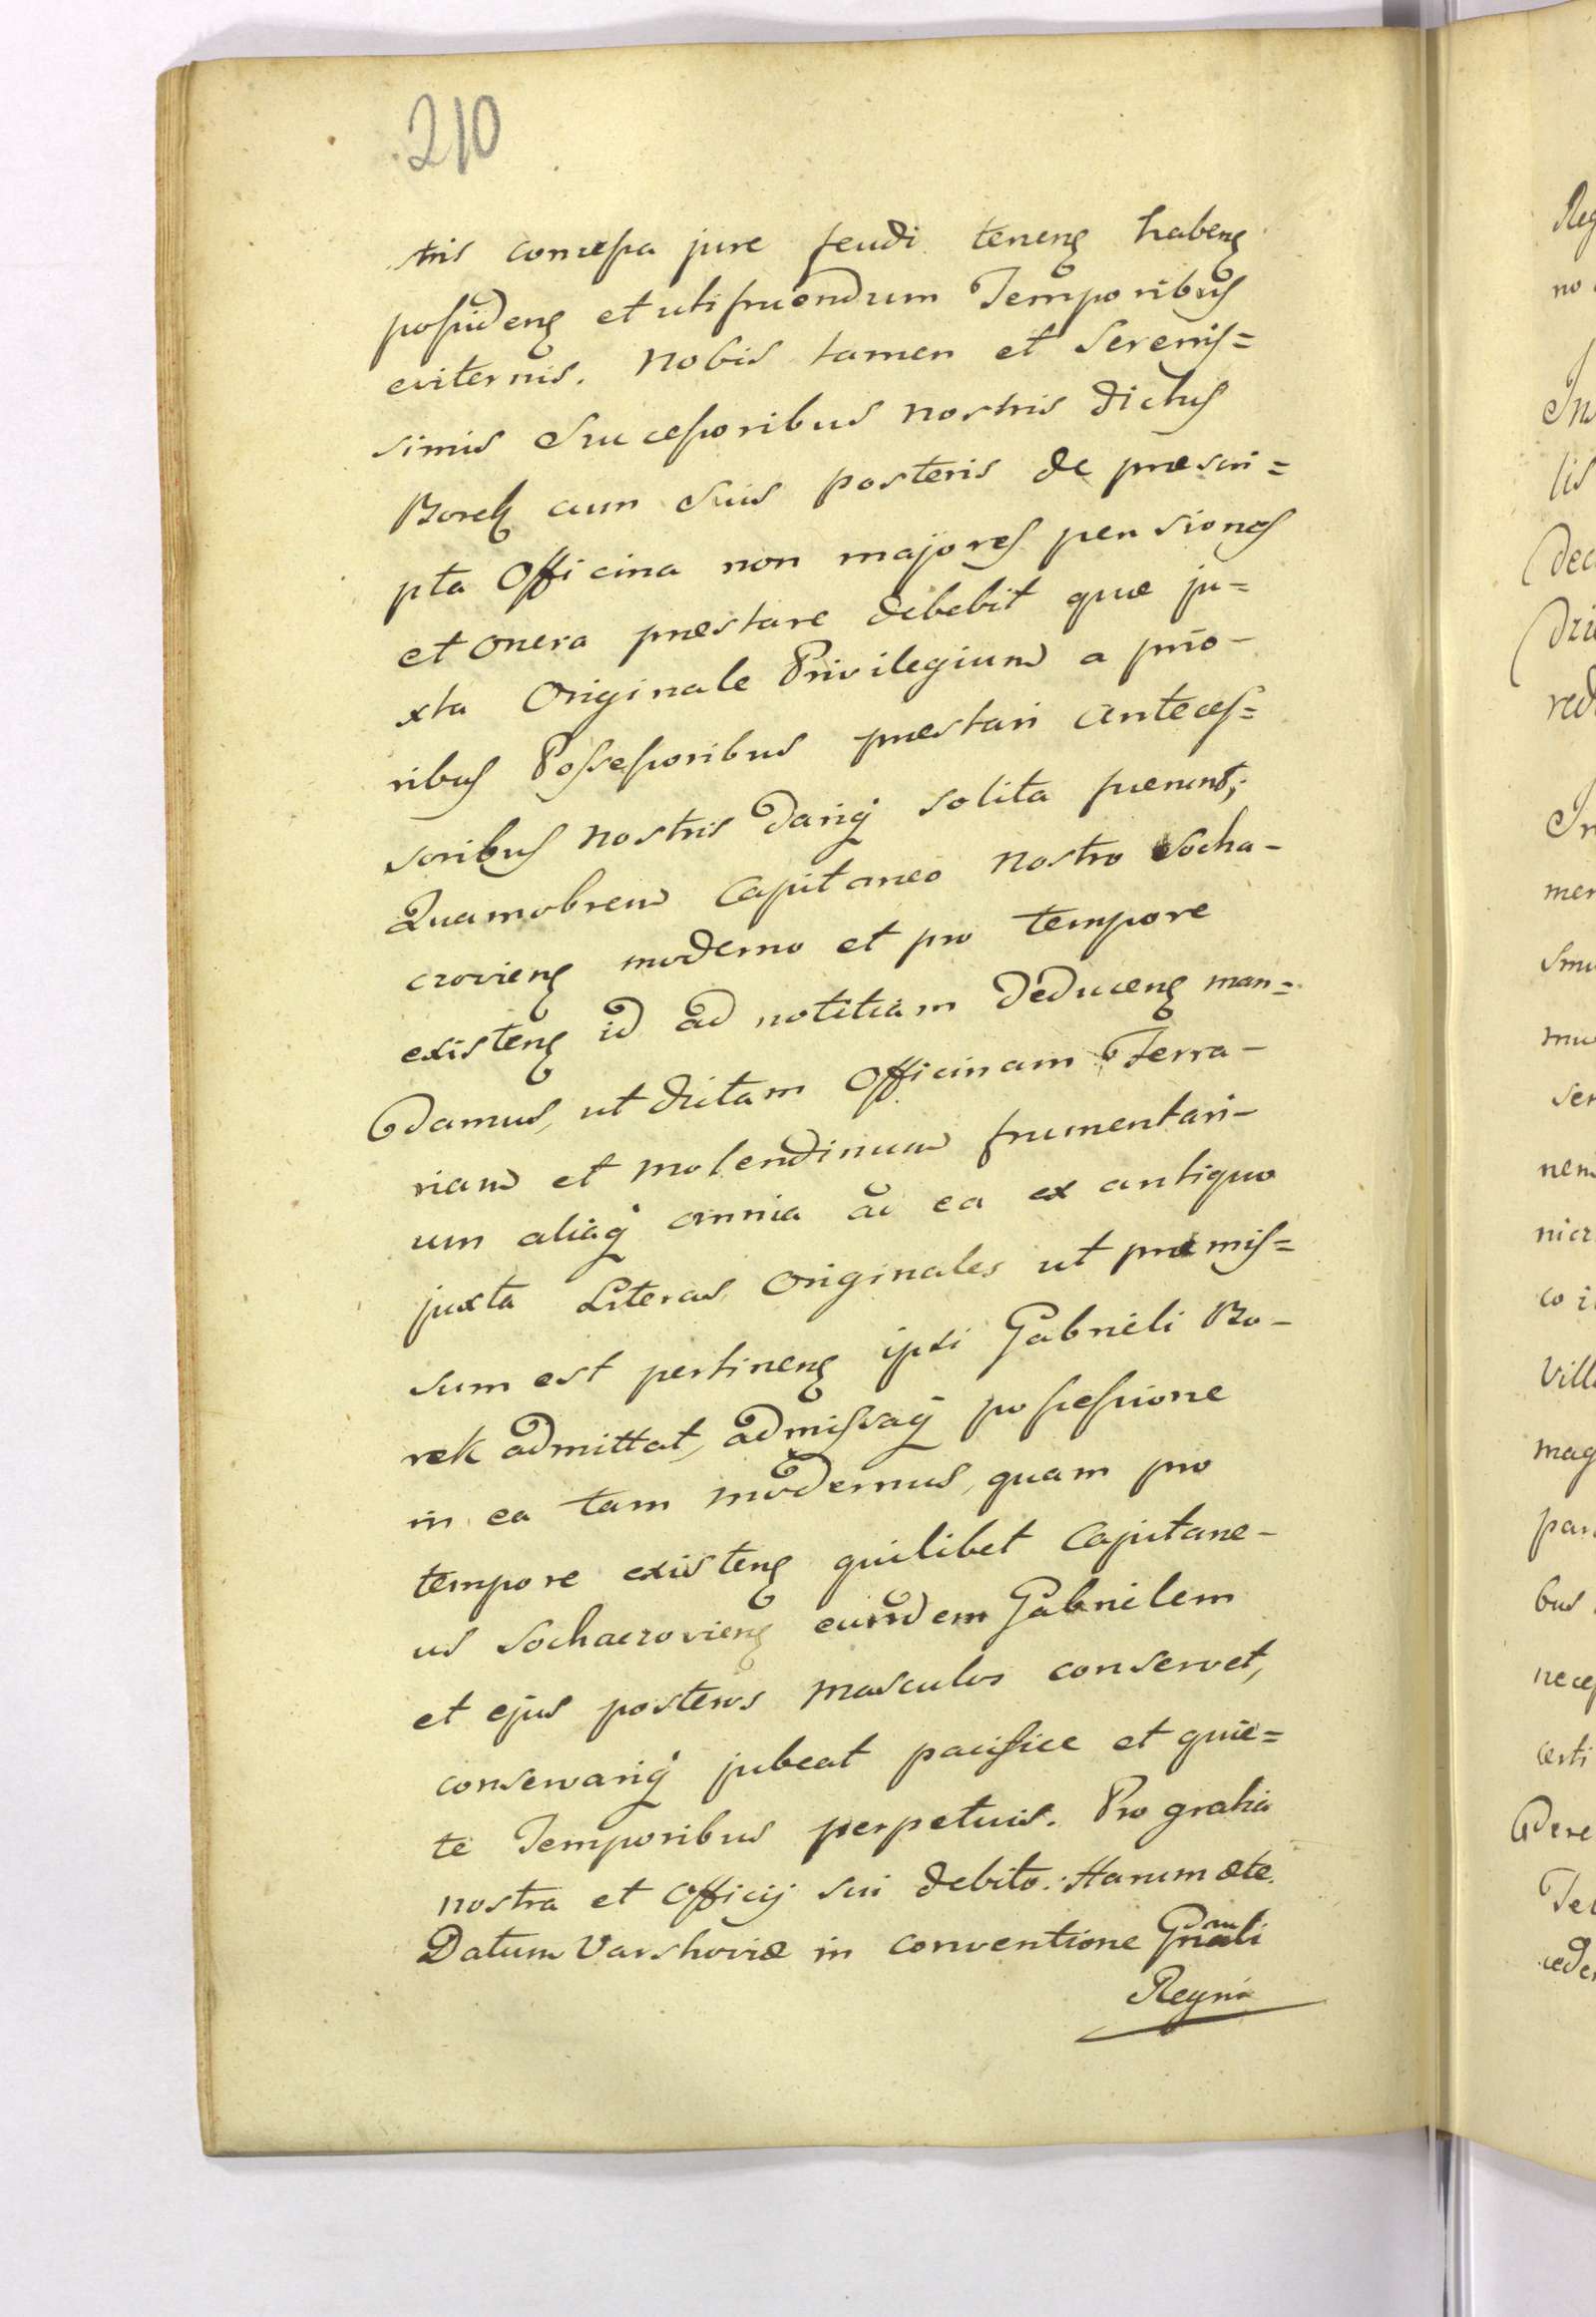 210
stris concessa jure feudi tenen haben
possiden et utifruendum Temporibus
eviternis. Nobis tamen et Serenis=
simis Successoribus nostris dictus
Borek cum Suis posteris de præscri=
pta Officina non majores pensiones
et onera præstare debebit quæ ju=
xta Originale Privilegium a prio-
ribus Possessoribus præstari Anteces=
soribus nostris dariq solita fuerunt;
Quamobrem Capitaneo nostro Socha-
czovien moderno et pro tempore
existen id ad notitiam deducen man=
damus, ut dictam Officinam Ferra-
riam et molendinum frumentari-
um aliaq omnia ad ea ex antiquo
juxta Literas Originales ut præmis=
sum est pertinen ipsi Gabrieli Bo-
rek admittat, admissaq possessione
in ea tam modernus, quam pro
tempore existen quilibet Capitane-
us Sochaczovien eundem Gabrielem
et ejus posteros masculos conservet,
conservariq jubeat pacifice et quie=
te Temporibus perpetuis. Pro gratia
nostra et Officij sui debito. Harum æte.
Datum Varshoviæ in conventione Gnali
Regni
Reg
no
In
lis
Dec
dri
red
In
men
mu
ser
nem
nicz
co i
Vill
mag
par
bus
neces
certi
dere
Te